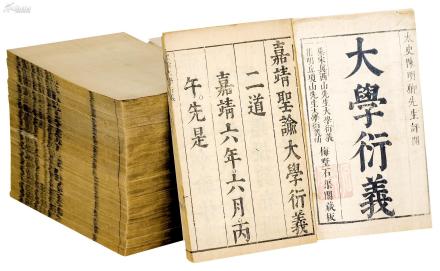 太史陳明卿先生評閱
大學衍義
宋真西山先生大學衍義
明丘瓊山先生大學衍義補
梅墅石渠閣藏板
嘉靖聖諭大學衍義
二道
嘉靖六年六月丙
午先是